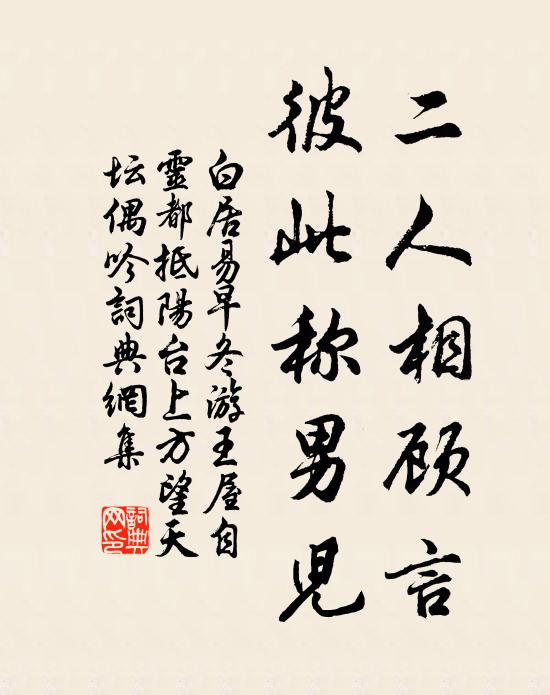 二人相顾言
彼此称男児
白居易早冬游王屋自
靈都抵陽台上方望天
坛偶吟詞典網集
詞典网印